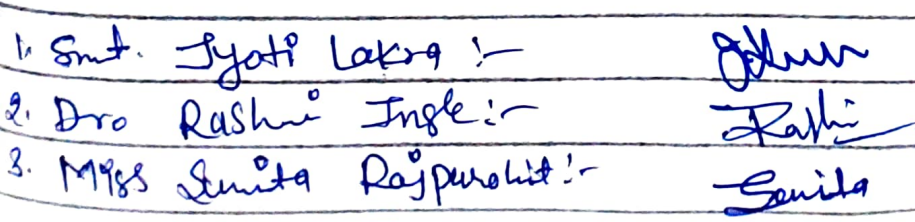 1. Smt. Jyoti Lakra :-
2. Dr. Rashmi Ingle :- Rashmi
3. Miss Sunita Rajpurohit :- Sunita